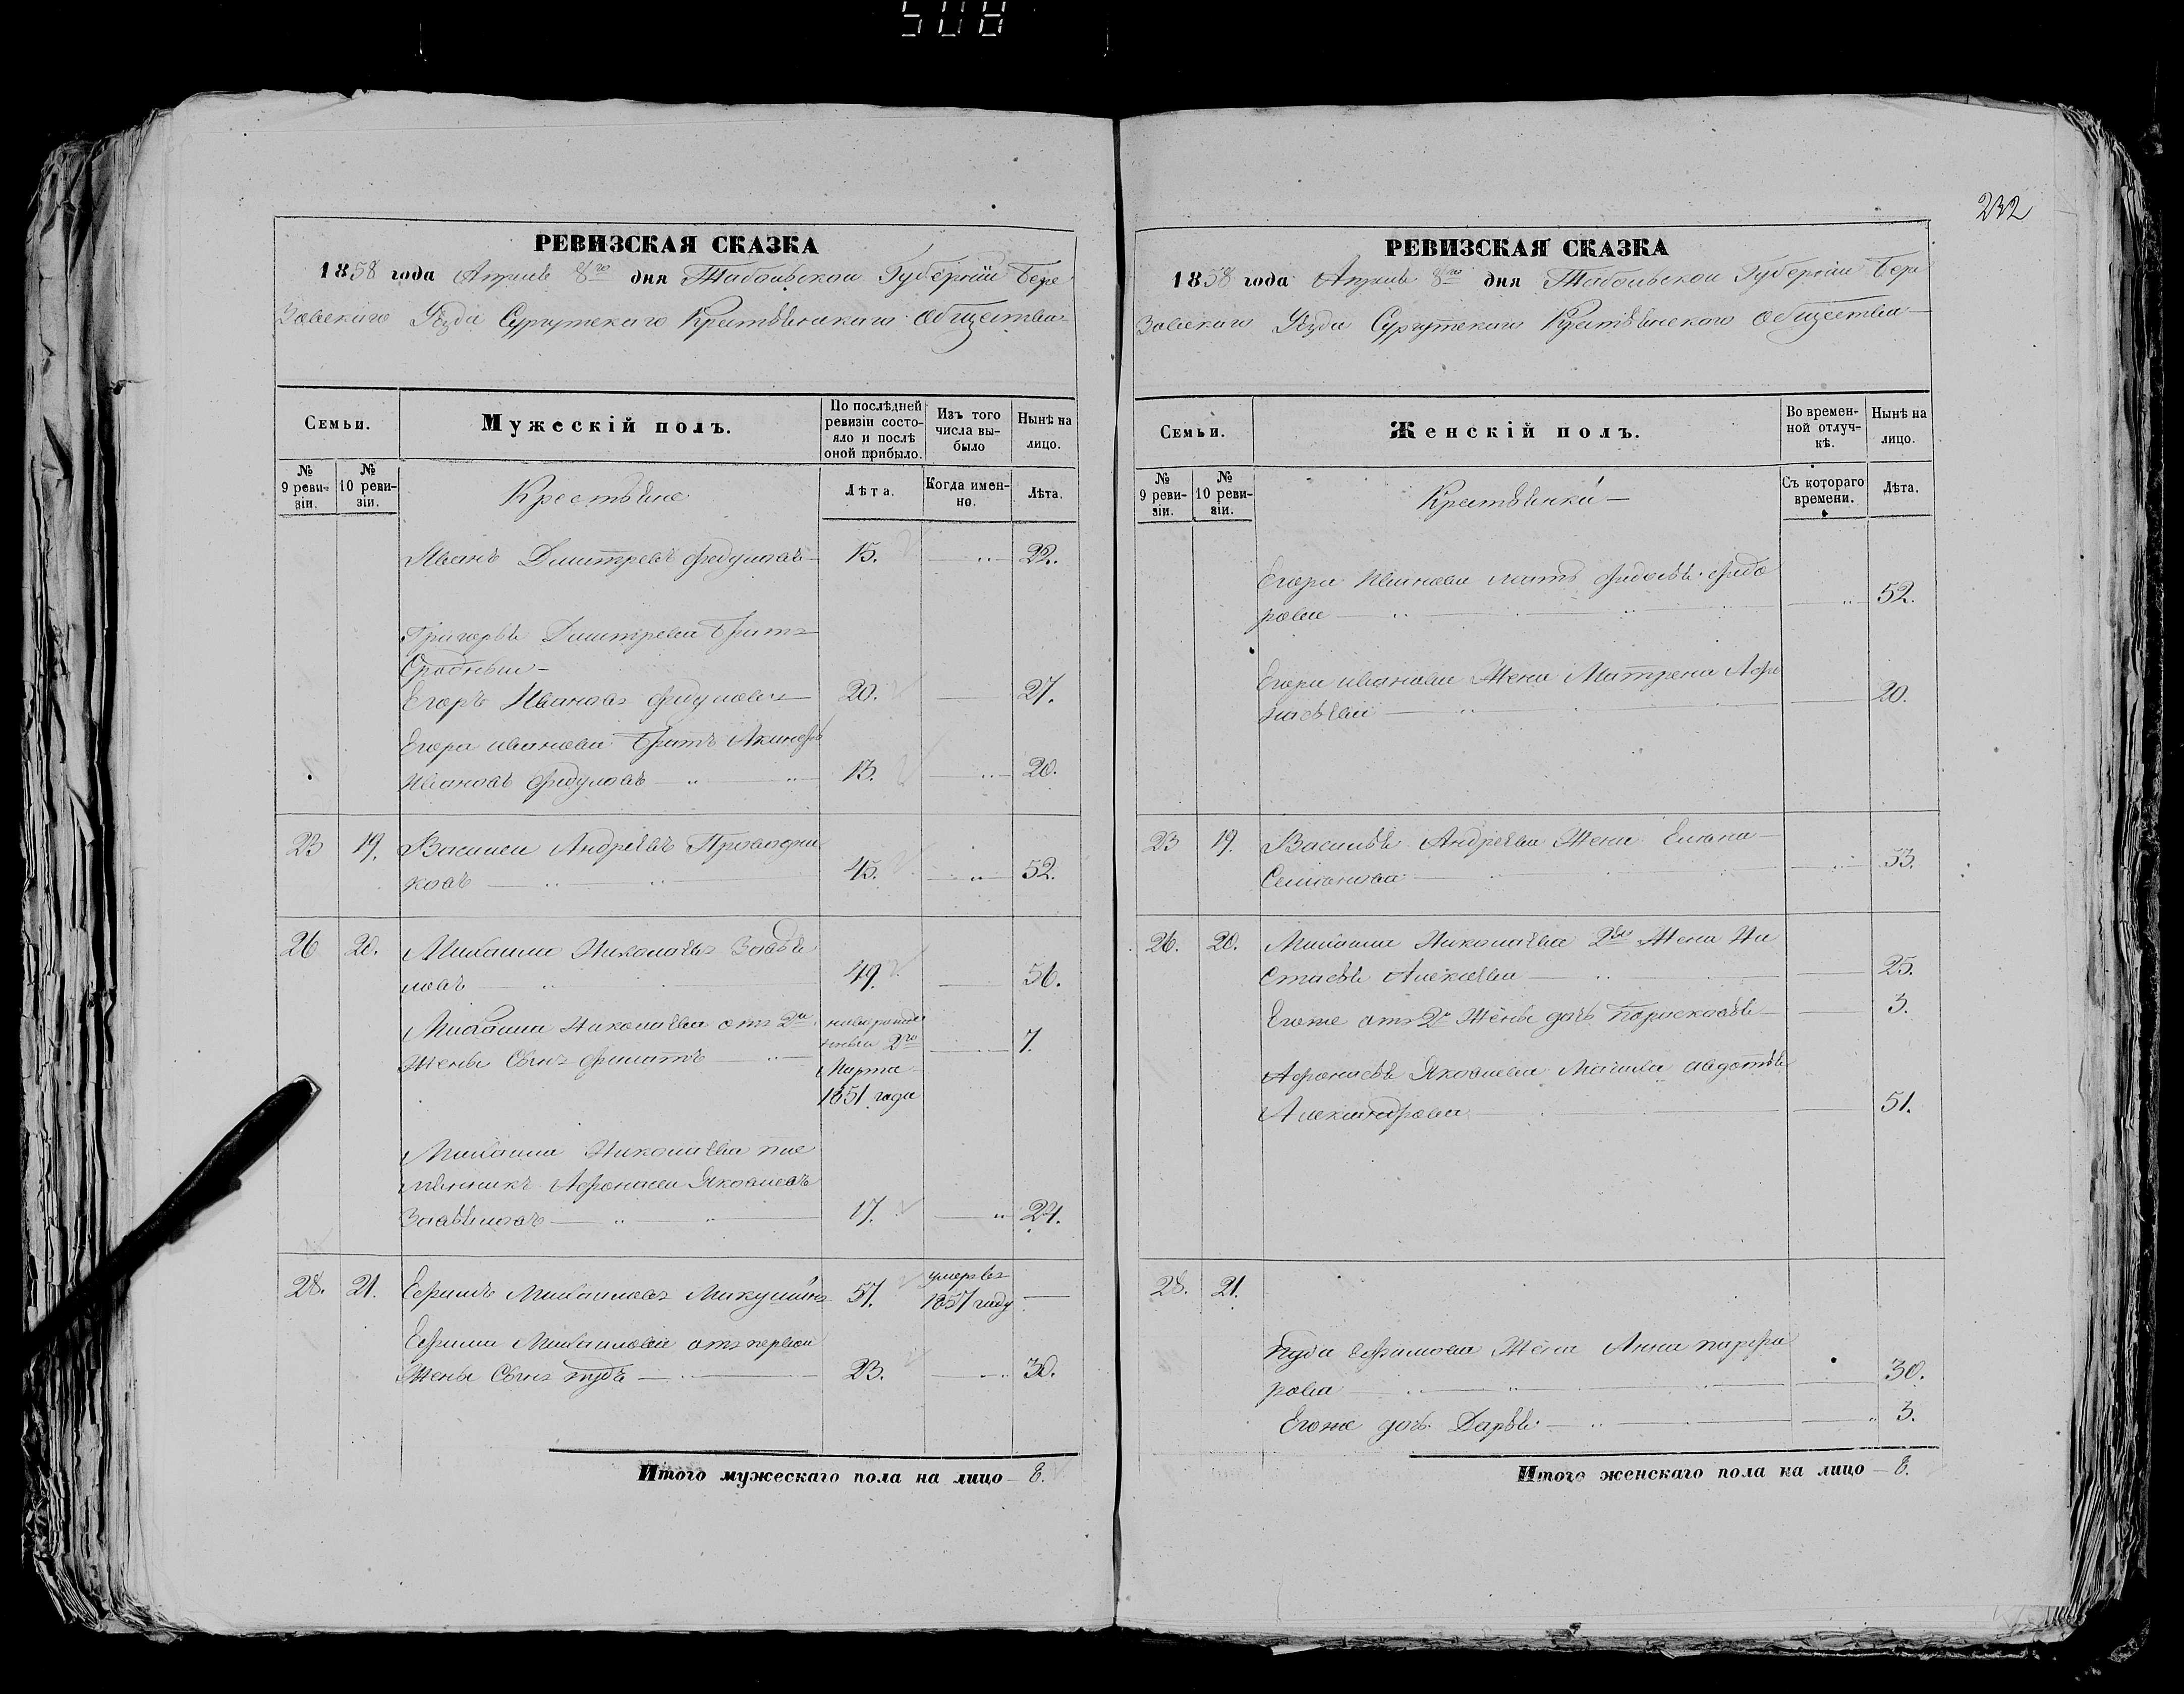 508
232
РЕВИЗСКАЯ СКАЗКА
1858 года Апреля 8го дня Тобольской Губернии Бере
зовскаго Уезда Сургутскаго Крестьянскаго общества
Семьи.
Мужескій полъ.
По послѣдней ревизіи состо-
яло и послѣ
оной прибыло.
Изъ того
числа вы-
было
Нынѣ на
лицо.
№
9 реви-
зіи.
№
10 реви-
зіи.
Крестьяне
Лѣта.
Когда имен-
но.
Лѣта.
Иванъ Дмитревъ Федуловъ 15. 22.
Григорья Дмитрева братъ
Сродный
Егоръ Ивановъ Федуловъ 20. 27.
Егора Иванова братъ
Ивановъ Федуловъ 13. 20.
23 19. Василей Андреевъ Проводни
ковъ 45. 52.
26 20. Михаила Николаевъ
49. 56.
Михаила Николаева отъ 2й
Жены Сынъ Филатъ 7.
новорожден
ный 2го
Марта
1851 года
Михаила Николаева пле
мянникъ Афонасей Яковлевъ
17. 24.
28. 21. Ефимъ Михаиловъ Микушинъ 57. умеръ въ
1857 году
Ефима Михаилова отъ первой
Жены Сынъ Пудъ 23. 30.
Итого мужескаго пола на лицо 8.
РЕВИЗСКАЯ СКАЗКА
1858 года Апреля 8го дня Тобольской Губернии Бере
зовскаго Уезда Сургутскаго Крестьянского общества
Семьи.
Женскій полъ.
Во времен-
ной отлуч-
кѣ.
Нынѣ на
лицо.
№
9 реви-
зіи.
№
10 реви-
зіи.
Крестьянки
Съ котораго
времени.
Лѣта.
Егора Иванова мать Федосья Федо
рова 52.
Егора Иванова Жена Матрена Афо
насьева 20.
23 19. Василья Андреева Жена Елена
Семионова 53.
26. 20. Михаила Николаева 2я Жена На
стасья Алексеева 25.
Егоже отъ 2й Жены дочь Парасковья 3.
Афонасья Яковлева Мачиха Авдотья
Александрова 51.
28. 21.
Пуда Ефимова Жена Анна
рова 30.
Егоже дочь Дарья 3.
Итого женскаго пола на лицо 8.